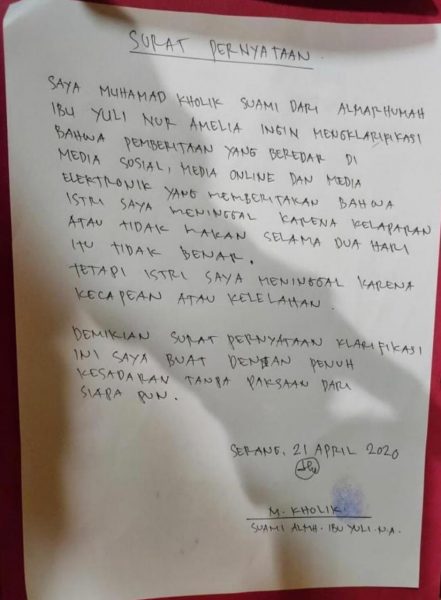 SURAT PERNYATAAN.
SAYA MUHAMAD KHOLIK SUAMI DARI ALMARHUMAH
IBU YULI NUR AMELIA INGIN MENGKLARIFIKASI
BAHWA PEMBERITAAN YANG BEREDAR DI
MEDIA SOSIAL, MEDIA ONLINE DAN MEDIA
ELEKTRONIK YANG MEMBERITAKAN BAHWA
ISTRI SAYA MENINGGAL KARENA KELAPARAN
ATAU TIDAK MAKAN SELAMA DUA HARI
ITU TIDAK BENAR.
TETAPI ISTRI SAYA MENINGGAL KARENA
KECAPEAN ATAU KELELAHAN.
DEMIKIAN SURAT PERNYATAAN KLARIFIKASI
INI SAYA BUAT DENGAN PENUH
KESADARAN TANPA PAKSAAN DARI
SIAPA PUN.
SERANG, 21 APRIL 2020
M. KHOLIK
SUAMI ALMH. IBU YULI.N.A.